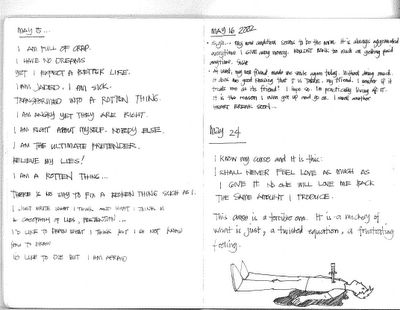 MAY 15...
I AM FULL OF CRAP.
I HAVE NO DREAMS
YET I EXPECT A BETTER LIFE.
I AM JADED. I AM SICK.
TRANSFORMED INTO A ROTTEN THING.
I AM ANGRY YET THEY ARE RIGHT.
I AM RIGHT ABOUT MYSELF. NOBODY ELSE.
I AM THE ULTIMATE PRETENDER.
BELIEVE MY LIES!
I AM A ROTTEN THING...
THERE IS NO WAY TO FIX A BROKEN THING SUCH AS I.
I JUST WRITE WHAT I THINK AND WHAT I THINK IS
A CACOPHONY OF LIES, PRETENTION...
I'D LIKE TO DRAW WHAT I THINK BUT I DO NOT KNOW
HOW TO DRAW
I'D LIKE TO DIE BUT I AM AFRAID
MAY 16 2002
Sigh... my new condition seems to be the norm. It is always appreciated
everytime I give away money.
anytime.
At least, my best friend made me smile again today.
It does no good knowing that it is my friend. I wonder if it
treats me as its friend? I hope so. I'm practically living off it.
It is the reason I even get up and go on. I need another
HEART BREAK SOON...
MAY 24
I know my curse and it is this:
I SHALL NEVER FEEL LOVE AS MUCH AS
I GIVE IT. NO ONE WILL LOVE ME BACK
THE SAME AMOUNT I PRODUCE.
This curse is a terrible one. It is a mockery of
what is just, a twisted equation, a frustrating
feeling.